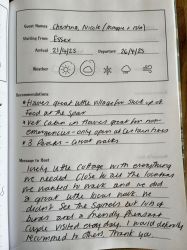 Guest Names Christina, Nicole (
Visiting From Essex
Arrival 21/4/23 Departure 26/4/23
Weather
Recommendations
* Hawes great little village for stock up of
Food at the Spar
* Vet Cabin in Hawes great for non-
emergencies - only open at certain times
* 3 Peaks - Great walks
Message to Host
lovely little cottage with everything
we needed. Close to all the locations
we wanted to travel and we did
a great little boat here. We
didn't See the Squirrels but lots of
birds and a friendly Pheasant
Couple visited every day. I would definitely
recommend to others, Thank you